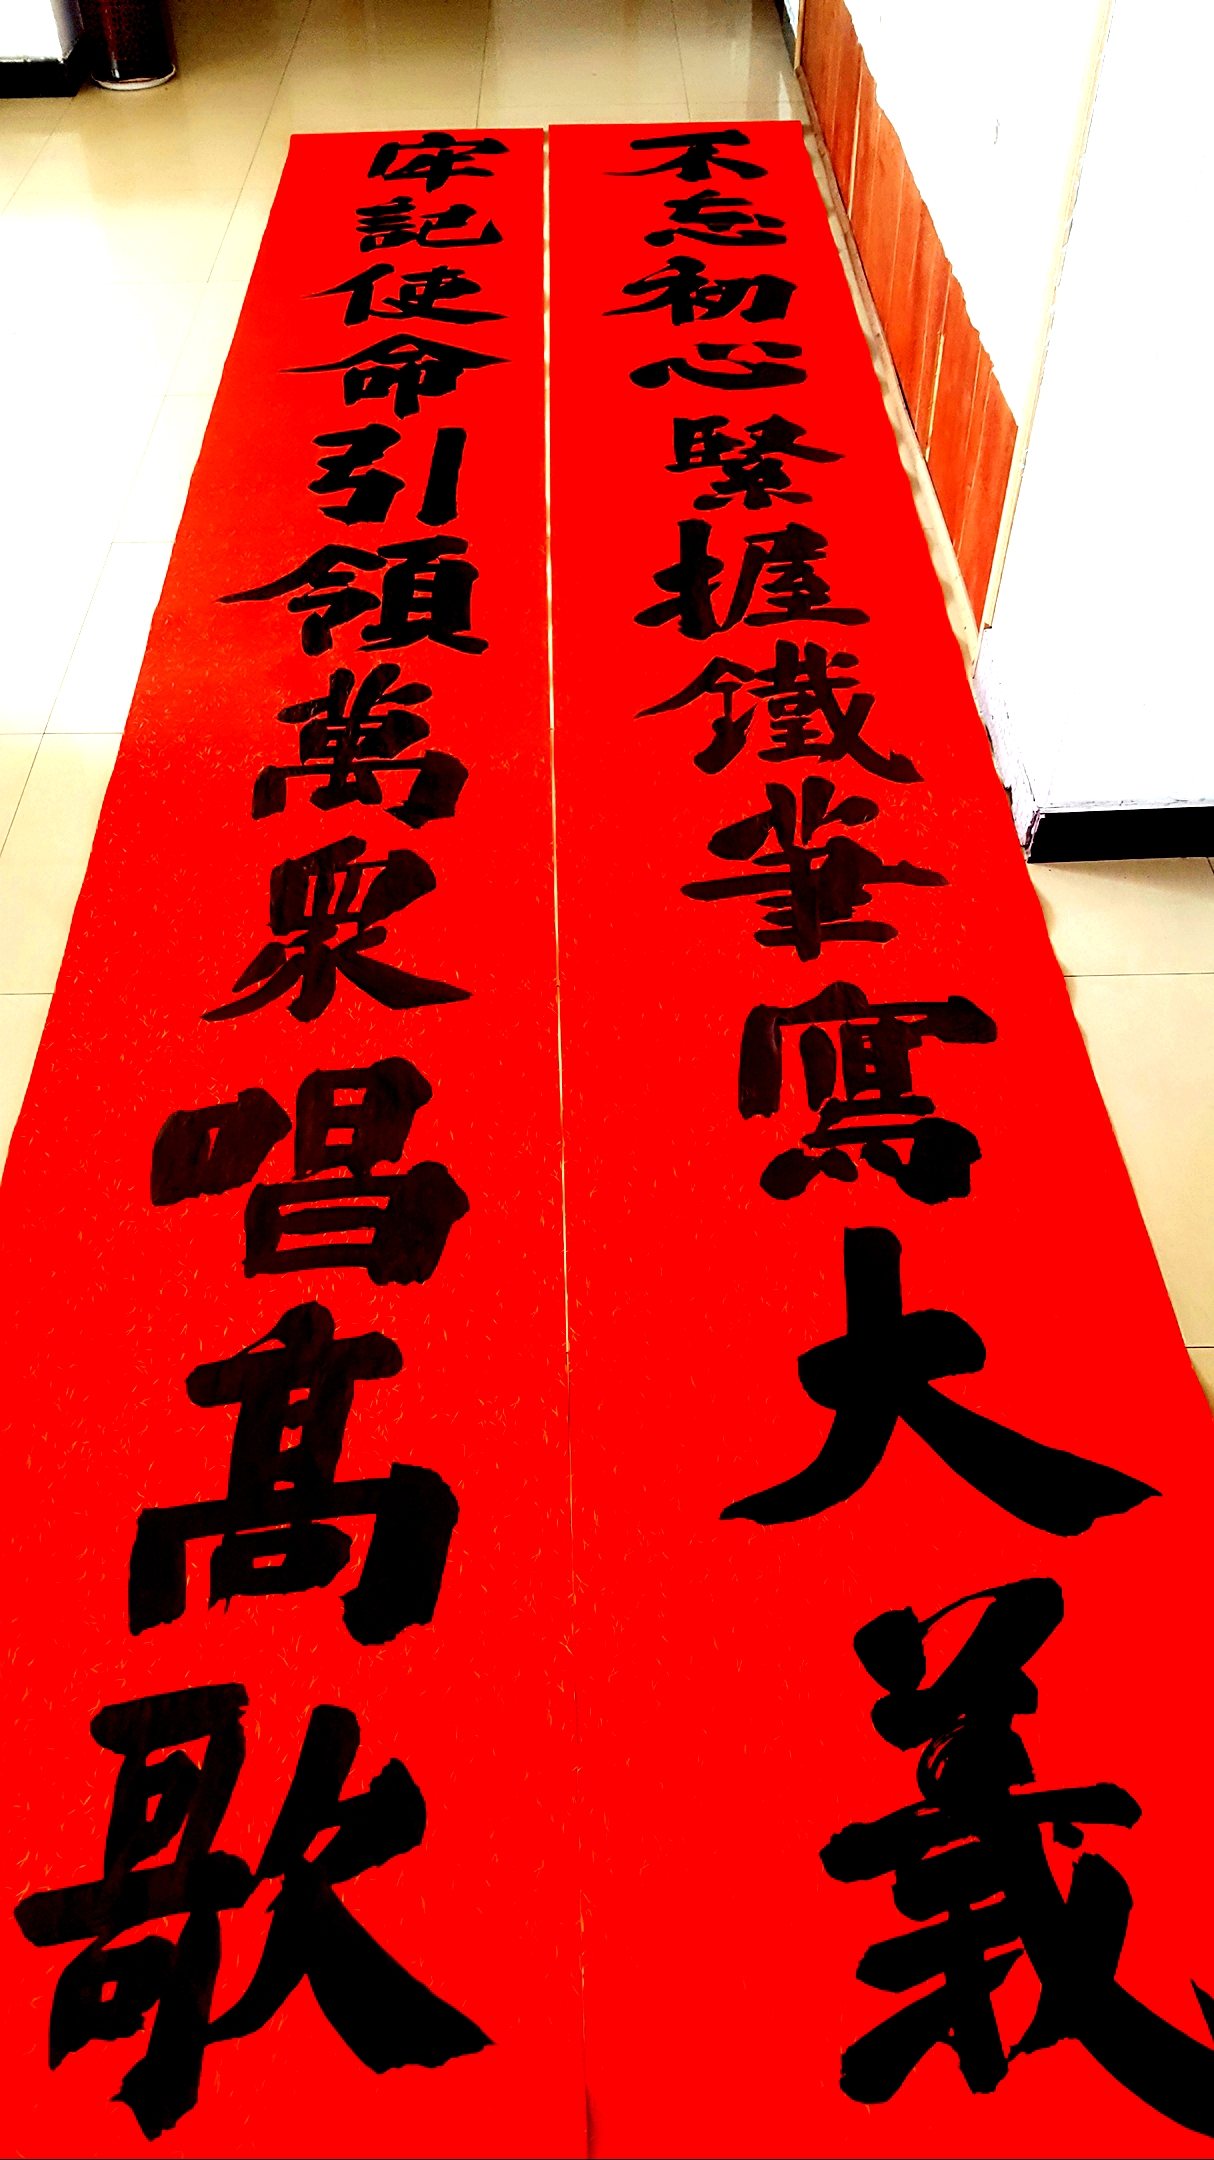 不忘初心緊握鐵筆寫大義
牢記使命引領萬眾唱高歌